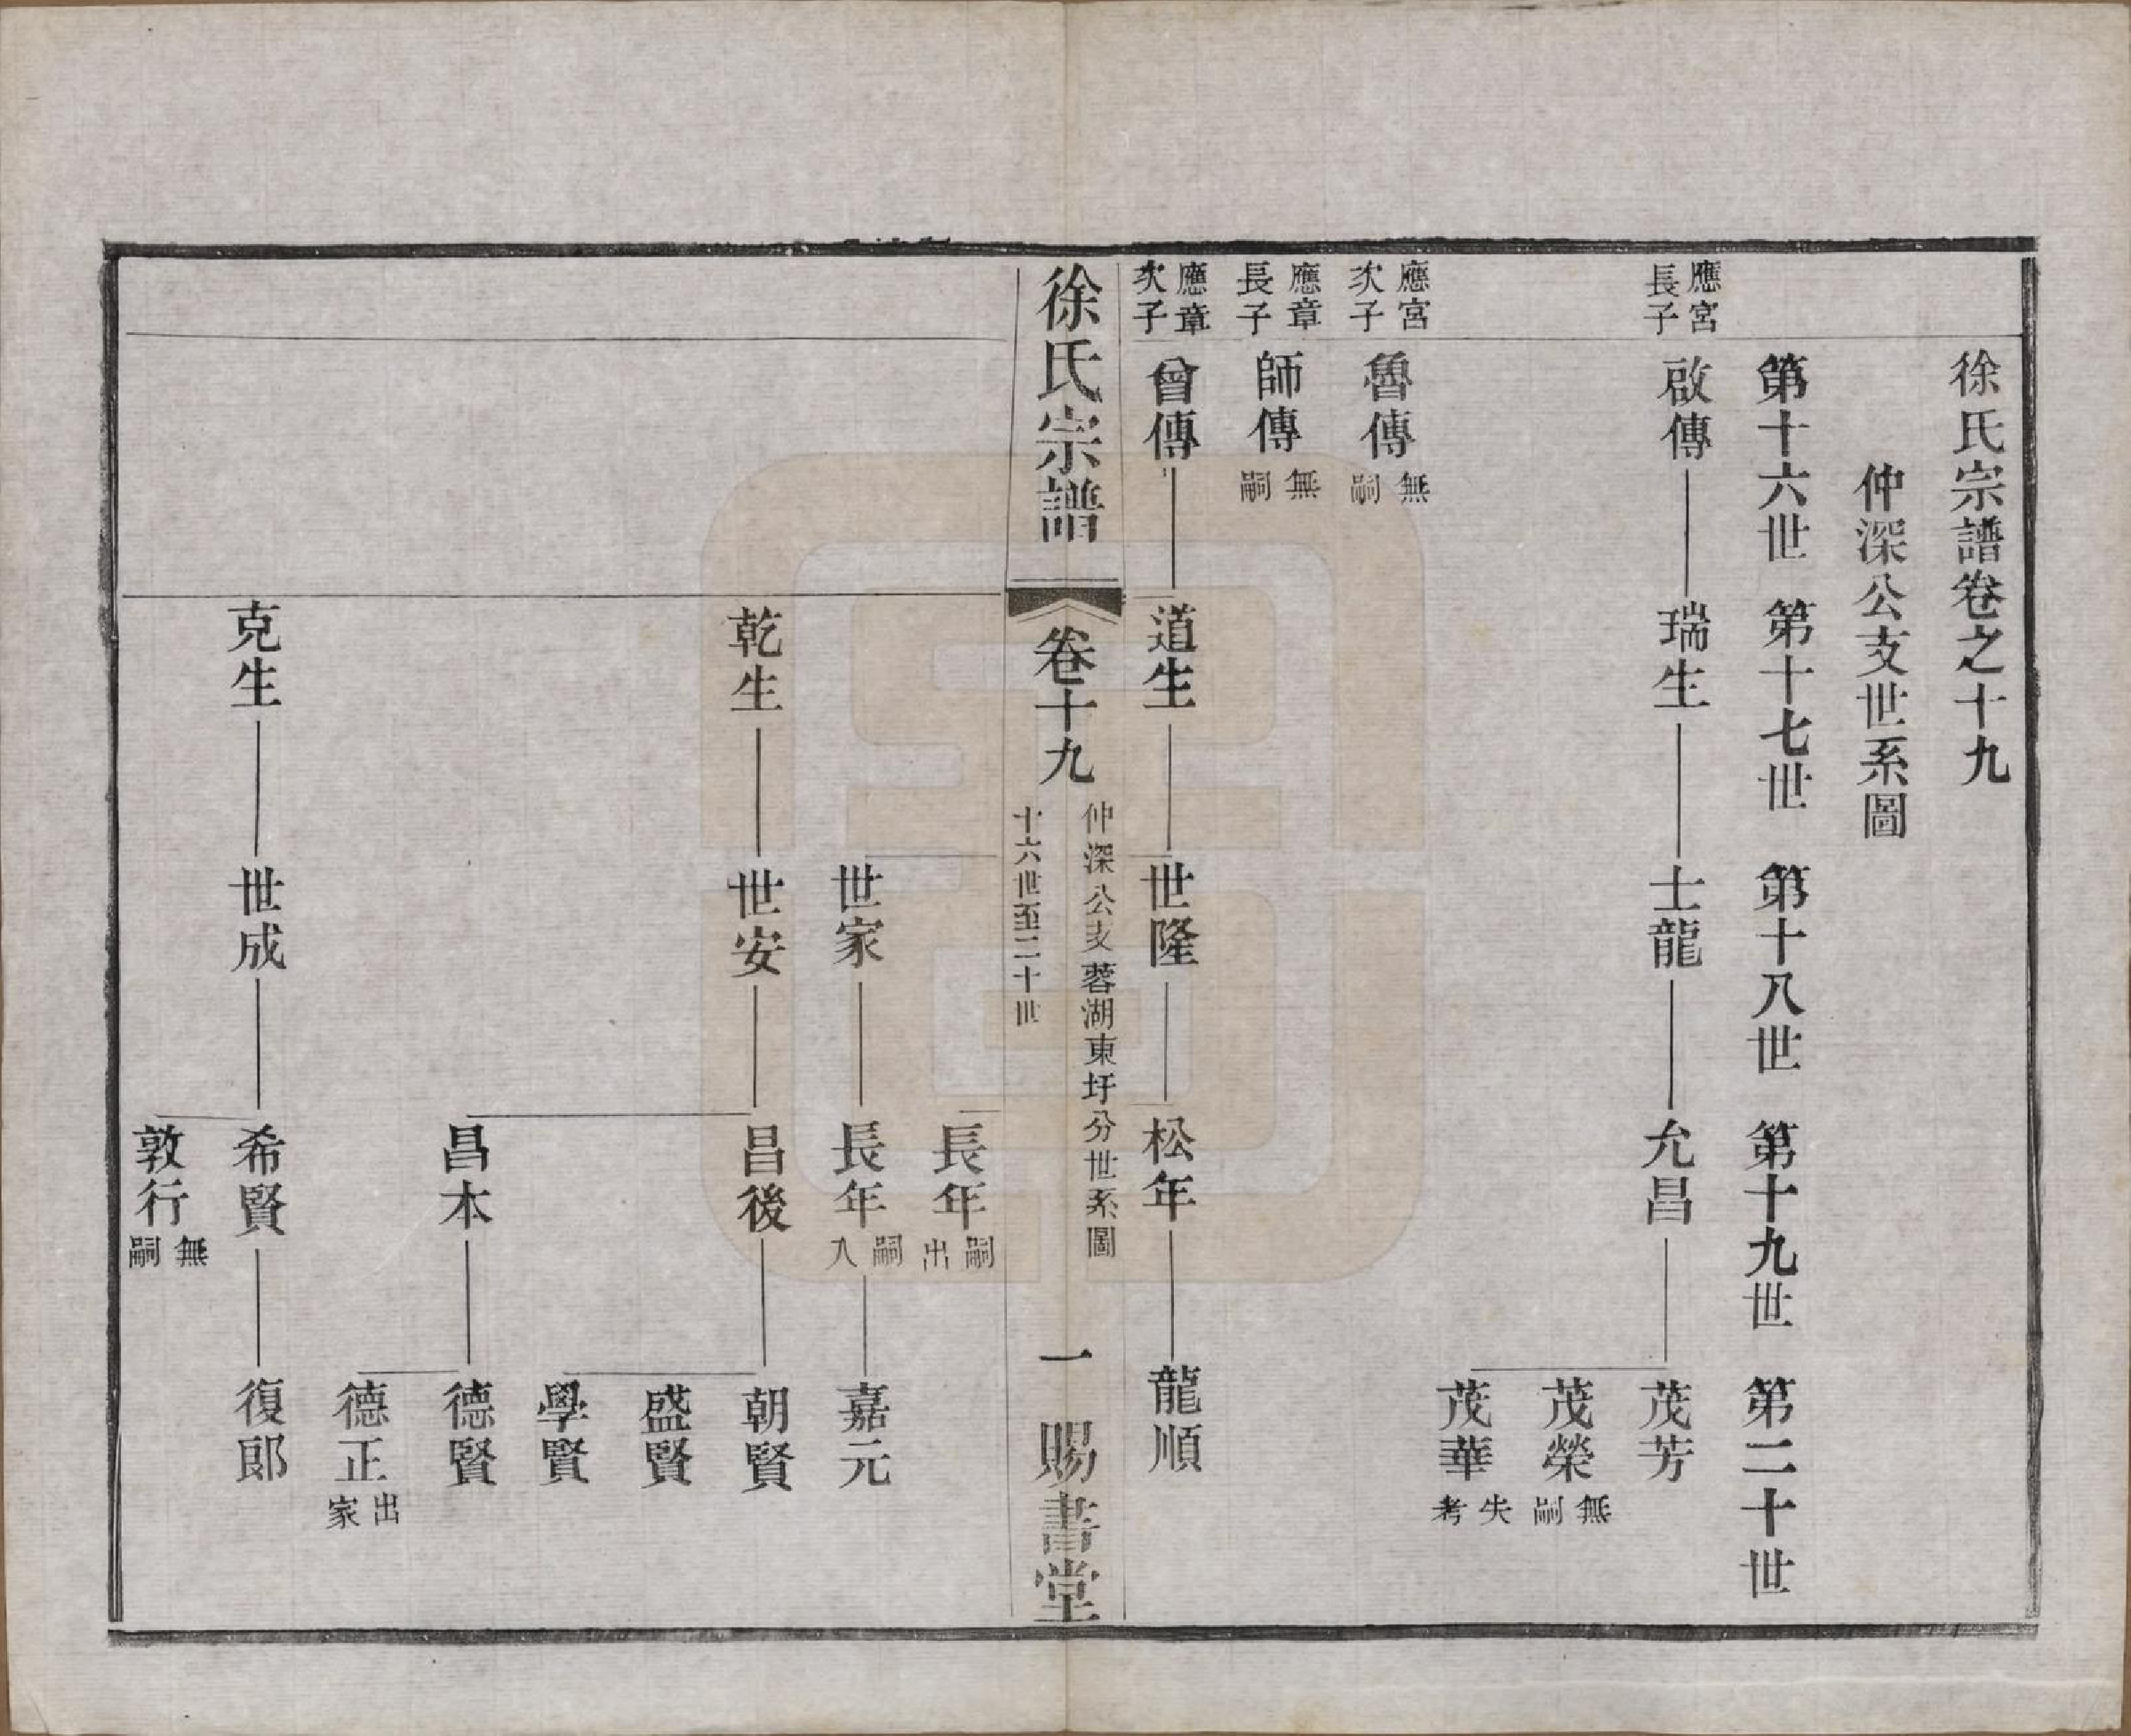 徐氏宗譜卷之十九
仲深公支世系圖
第十六世　第十七世　第十八世　第十九世　第二十世
應宮長子　啟傳　瑞生　士龍　允昌　茂芳
茂榮　無嗣
茂華　失考
應宮次子　魯傳　無嗣
應章長子　師傳　無嗣
應章次子　曾傳　道生　世隆　松年　龍順
徐氏宗譜　卷十九　仲深公支蓉湖東圩分世系圖　十六世至二十世　一　賜書堂
長年　嗣出
世家　長年　嗣入　嘉元
乾生　世安　昌後　朝賢
盛賢
學賢
昌本　德賢
德正　出家
克生　世成　希賢　復郎
敦行　無嗣